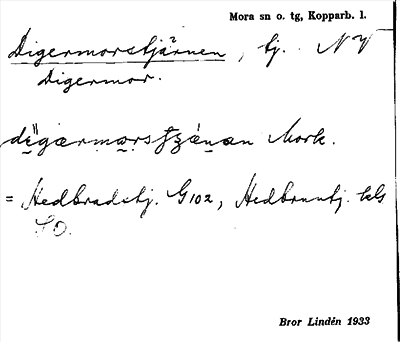 Mora sn o. tg, Kopparb. l.
Digermorstjärnen, tj. NV
Digermor.
Mork.
= Hedbradstj. G102, Hedbruntj. kls
SO.
Bror Lindén 1933